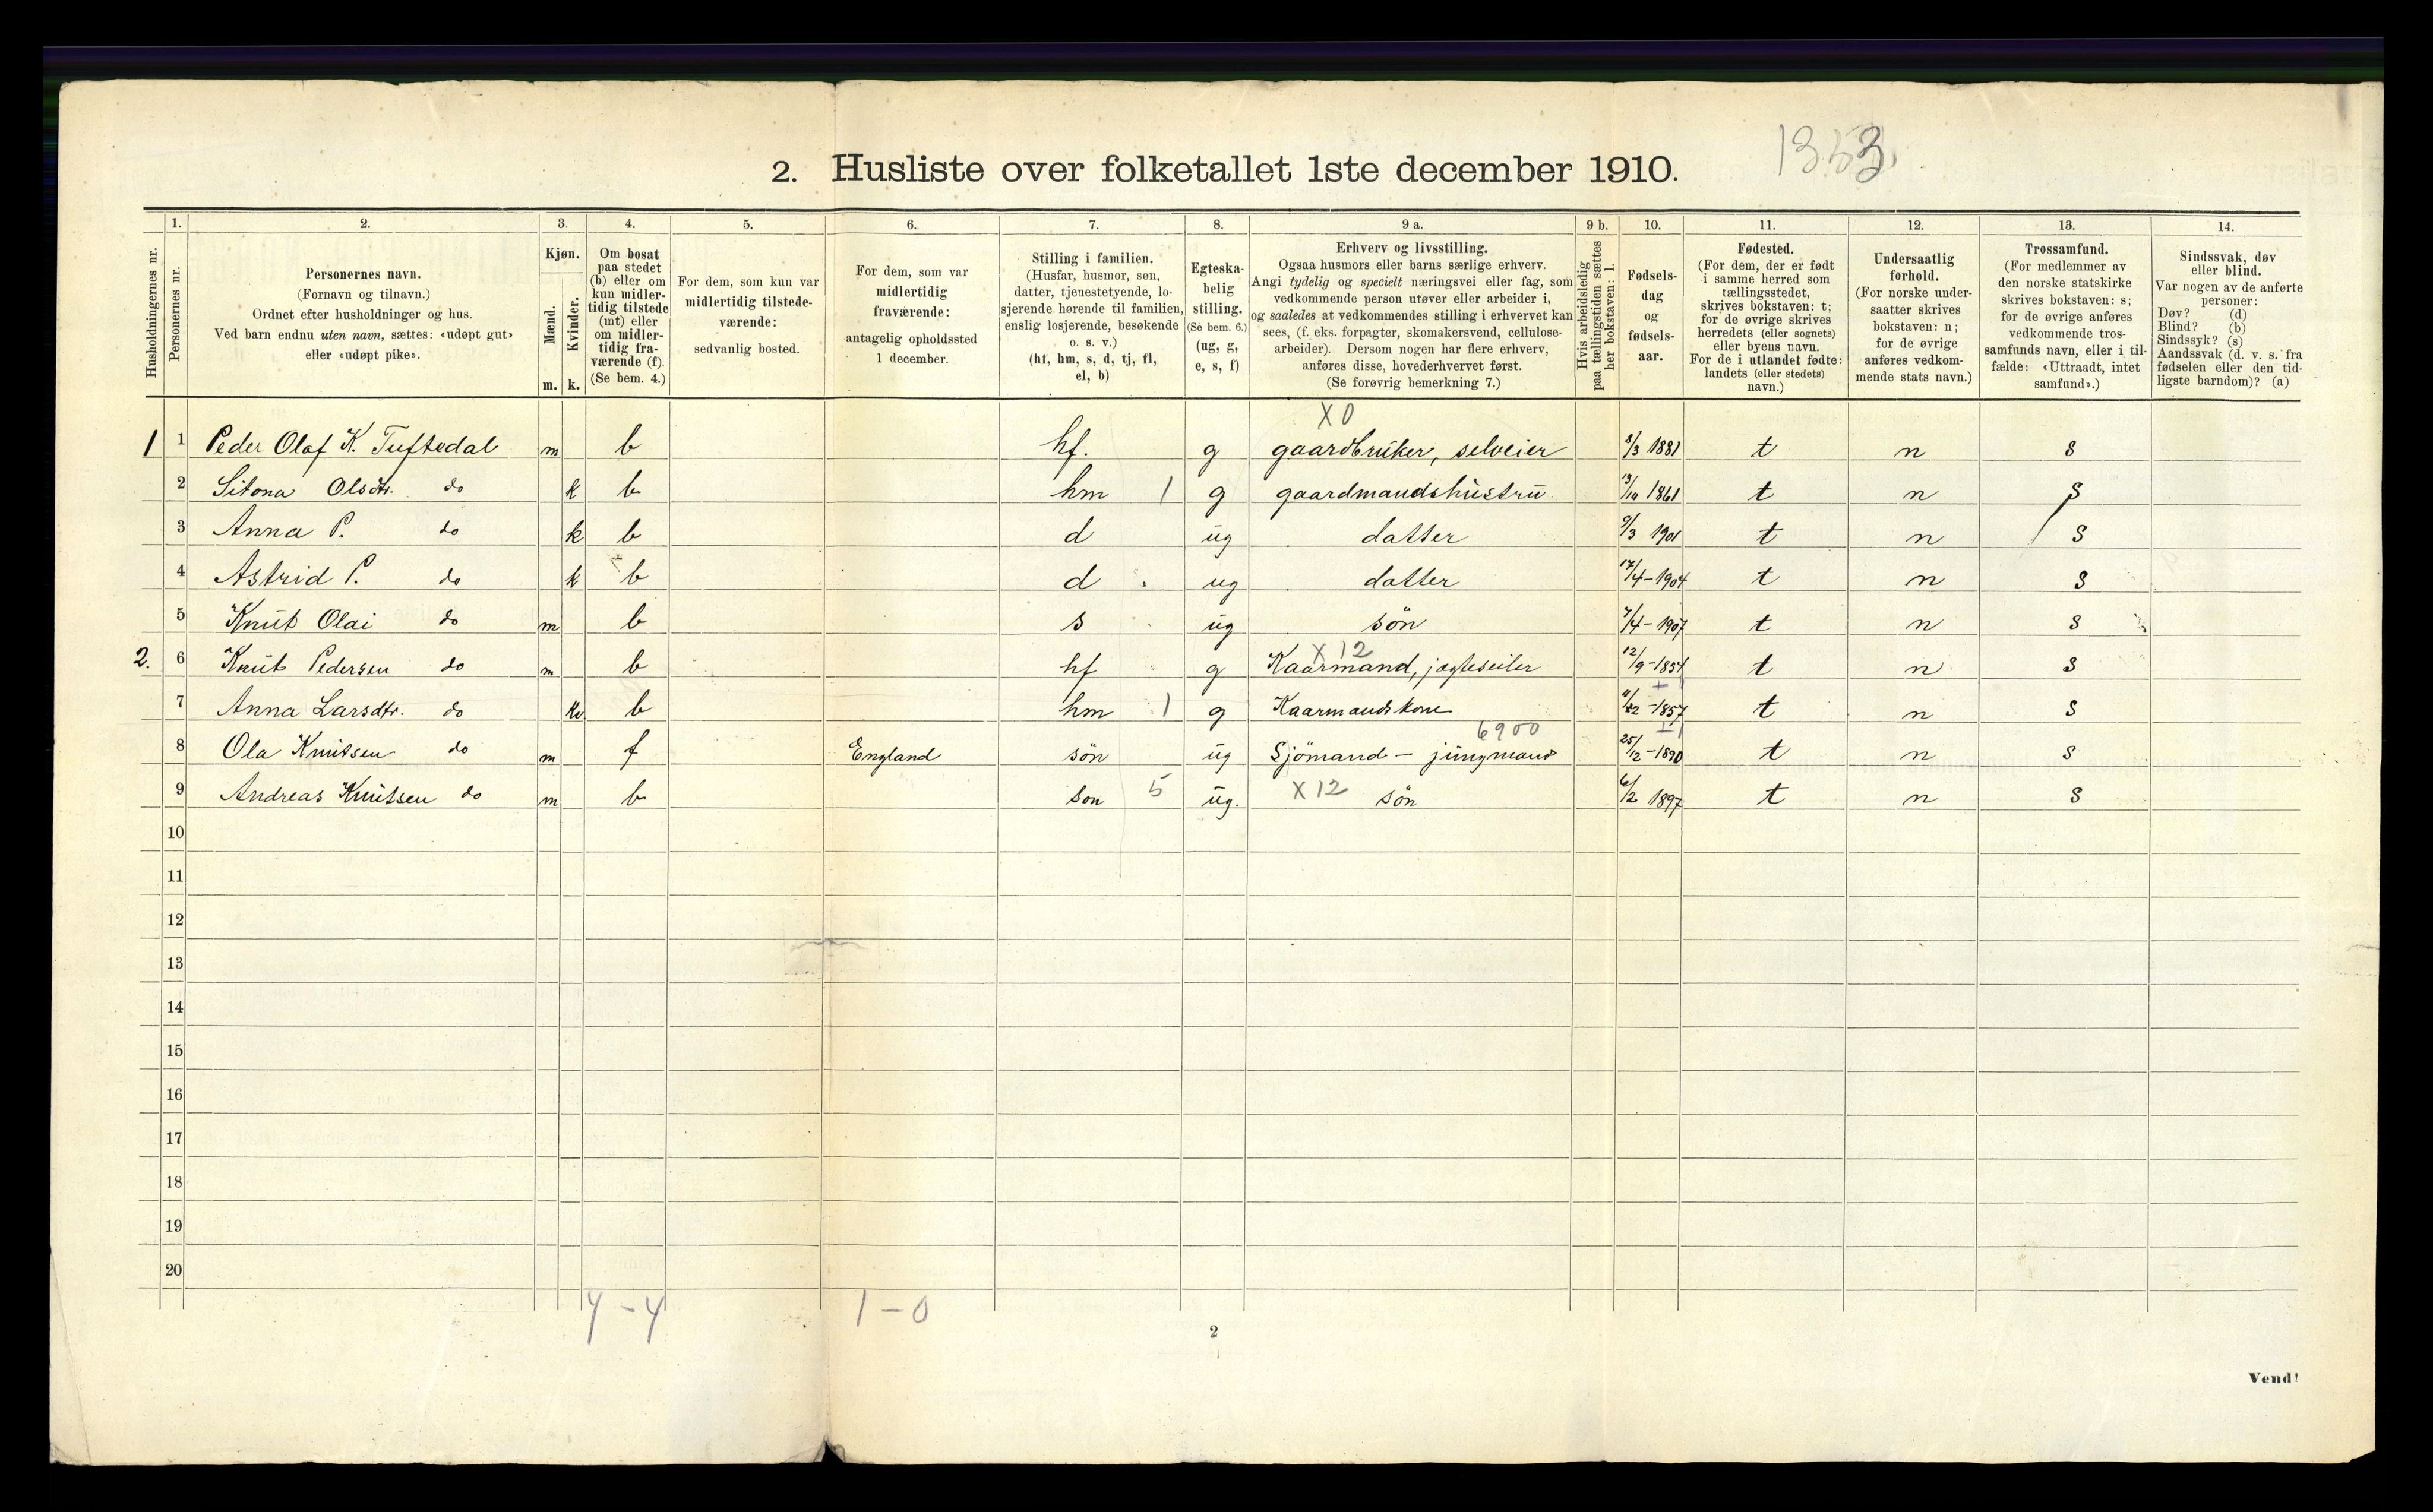 1353.
2. Husliste over folketallet 1ste december 1910.
1. 2. 3. 4. 5. 6. 7. 8. 9 a. 9 b. 10. 11. 12. 13. 14.
Husholdningernes nr.
Personernes nr.
Personernes navn.
(Fornavn og tilnavn.)
Ordnet efter husholdninger og hus.
Ved barn endnu uten navn, sættes: «udøpt gut»
eller «udøpt pike».
Kjøn.
Mænd.
Kvinder.
m. k.
Om bosat
paa stedet
(b) eller om
kun midler-
tidig tilstede
(mt) eller
om midler-
tidig fra-
værende (f).
(Se bem. 4.)
For dem, som kun var
midlertidig tilstede-
værende:
sedvanlig bosted.
For dem, som var
midlertidig
fraværende:
antagelig opholdssted
1 december.
Stilling i familien.
(Husfar, husmor, søn,
datter, tjenestetyende, lo-
sjerende hørende til familien,
enslig losjerende, besøkende
o. s. v.)
(hf, hm, s, d, tj, fl,
el, b)
Egteska-
belig
stilling.
(Se bem. 6.)
(ug, g,
e, s, f)
Erhverv og livsstilling.
Ogsaa husmors eller barns særlige erhverv.
Angi tydelig og specielt næringsvei eller fag, som
vedkommende person utøver eller arbeider i,
og saaledes at vedkommendes stilling i erhvervet kan
sees, (f. eks. forpagter, skomakersvend, cellulose-
arbeider). Dersom nogen har flere erhverv,
anføres disse, hovederhvervet først.
(Se forøvrig bemerkning 7.)
Hvis arbeidsledig
paa tællingstiden sættes
her bokstaven: l.
Fødsels-
dag
og
fødsels-
aar.
Fødested.
(For dem, der er født
i samme herred som
tællingsstedet,
skrives bokstaven: t;
for de øvrige skrives
herredets (eller sognets)
eller byens navn.
For de i utlandet fødte:
landets (eller stedets)
navn.)
Undersaatlig
forhold.
(For norske under-
saatter skrives
bokstaven: n;
for de øvrige
anføres vedkom-
mende stats navn.)
Trossamfund.
(For medlemmer av
den norske statskirke
skrives bokstaven: s;
for de øvrige anføres
vedkommende tros-
samfunds navn, eller i til-
fælde: «Uttraadt, intet
samfund».)
Sindssvak, døv
eller blind.
Var nogen av de anførte
personer:
Døv? (d)
Blind? (b)
Sindssyk? (s)
Aandssvak (d. v. s. fra
fødselen eller den tid-
ligste barndom)? (a)
X 0
1 1 Peder Olaf K. Tuftedal m b hf. g gaardbruker, selveier 8/3 1881 t n s
2 Sitona Olsdtr. do k b hm 1 g gaardmandshustru 13/10 1861 t n s
3 Anna P. do k b d ug datter 9/3 1901 t n s
4 Astrid P. do k b d ug datter 17/4-1904 t n s
5 Knut Olai do m b s ug søn 7/4-1907 t n s
X 12
2. 6 Knut Pedersen do m b hf g Kaarmand, jagteseiler 12/9-1854 t n s
7 Anna Larsdtr. do kv b hm 1 g Kaarmandskone -1857 t n s
6900
8 Ola Knutsen do m f England søn ug Sjömand – jungmand 25/12-1890 t n s
9 Andreas Knutsen do m b søn 5 ug. X 12 søn 6/2 1897 t n s
10
11
12
13
14
15
16
17
18
19
20
4 - 4 1 - 0
2
Vend!